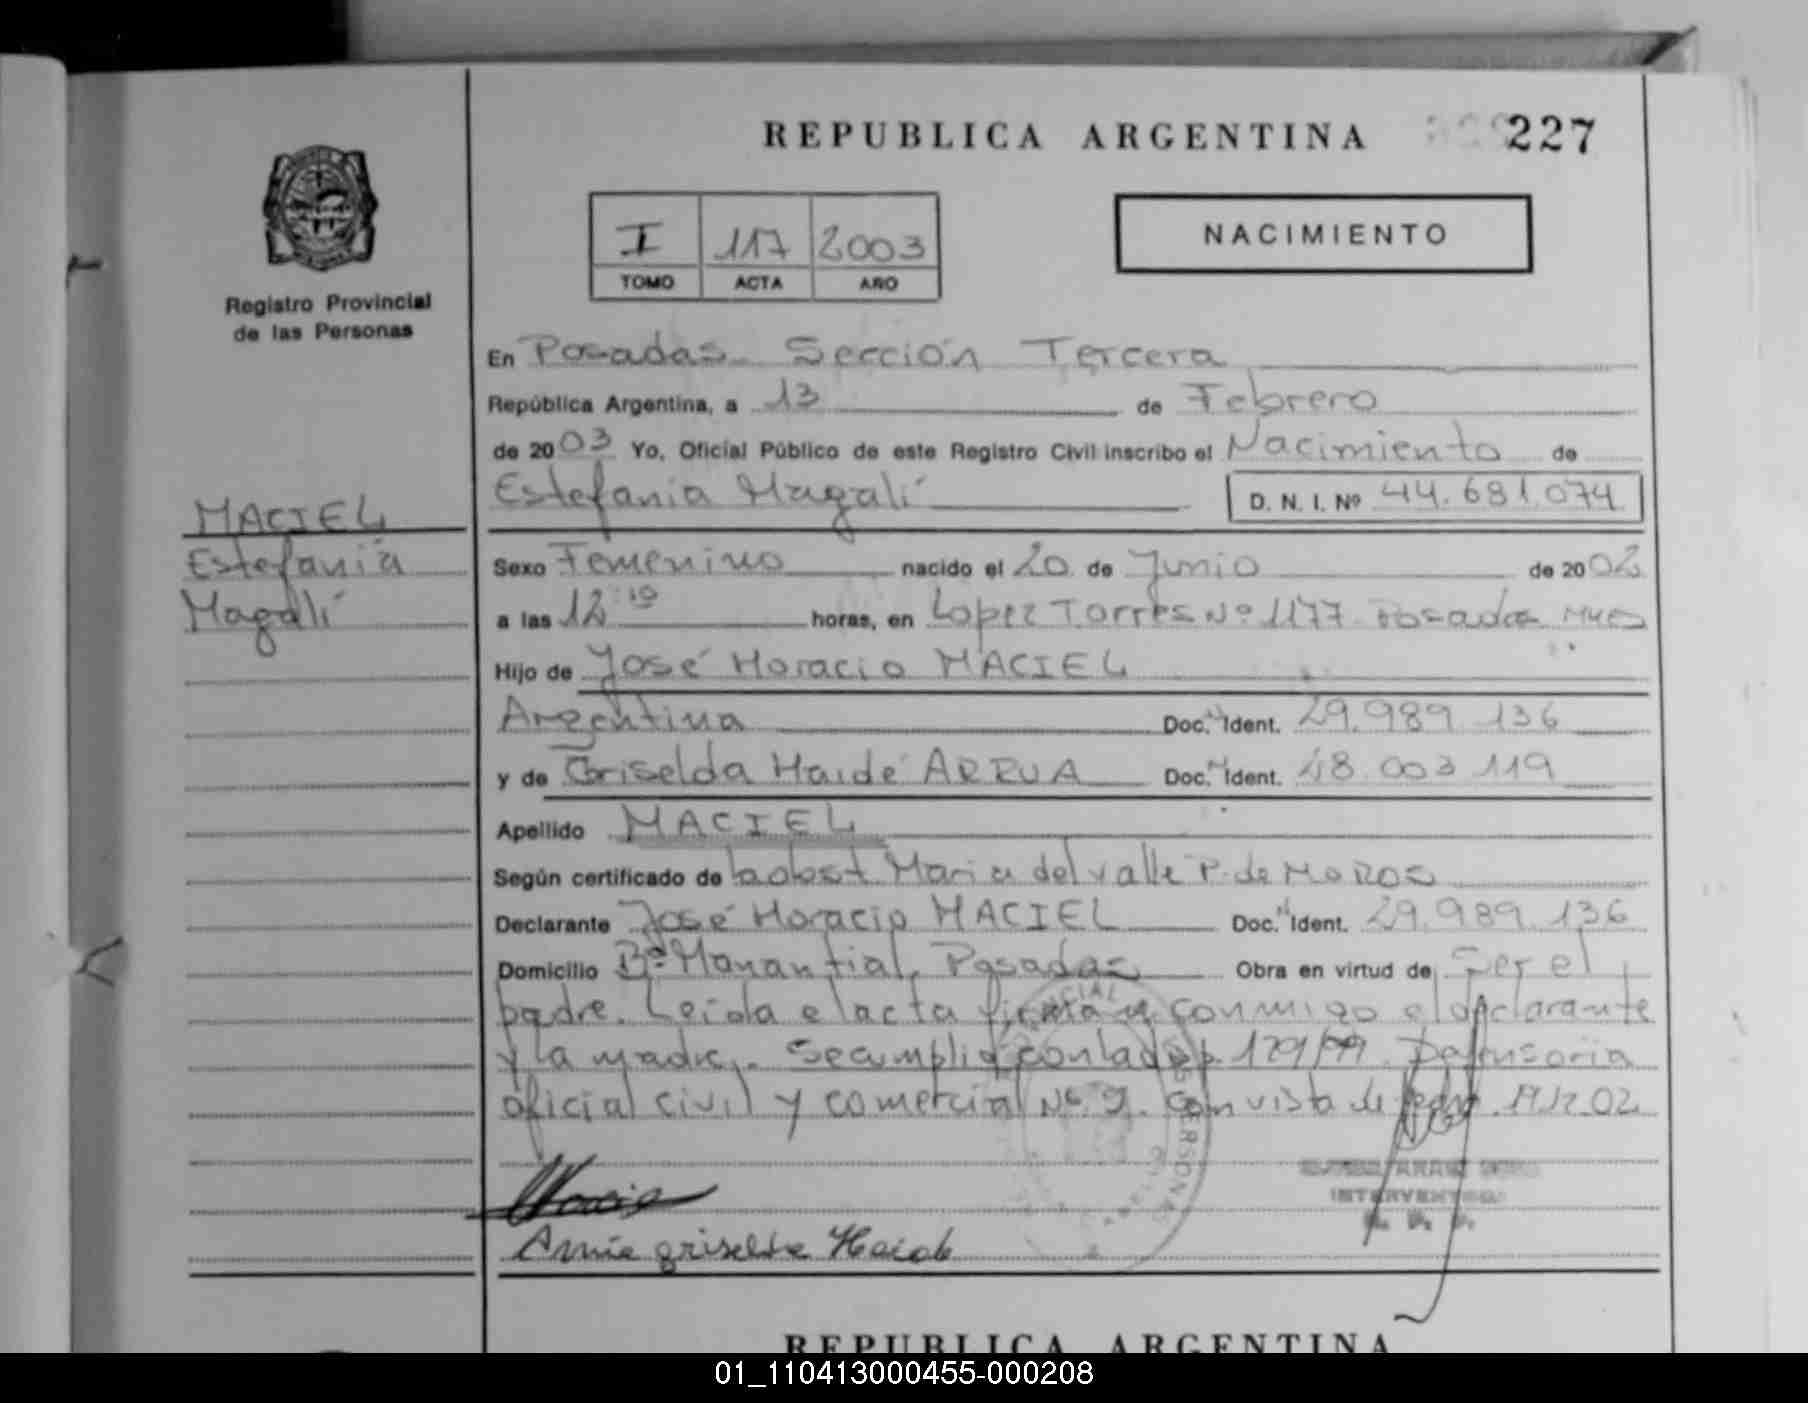 REPUBLICA ARGENTINA 227
NACIMIENTO
I 117 2003
TOMO ACTA AÑO
Registro Provincial
de las Personas
En Posadas Sección Tercera
República Argentina, a 13 de Febrero
de 2003 Yo, Oficial Público de este Registro Civil inscribo el Nacimiento de
Estefania Magalí D. N. I. Nº 44.681.074
MACIEL
Estefania
Magalí
Sexo Femenino nacido el 20 de Junio de 2002
a las 12 10 horas, en Lopez Torres Nº 1177 Posadas Mnes
Hijo de José Horacio MACIEL
Argentina Doc. Ident. 29.989.136
y de Griselda Haidé ARRUA Doc. Ident. 18.003.119
Apellido MACIEL
Según certificado de Maria del valle P. de
Declarante José Horacio MACIEL Doc. Ident. 29.989.136
Domicilio Bº Manantial, Posadas Obra en virtud de Ser el
padre. Leida el acta firma conmigo el declarante
y la madre. Se cumplio con la 129/99 Defensoria
oficial civil y comercial Nº 9. con vista de 17.12.02
griselda
REPUBLICA ARGENTINA
01_110413000455-000208